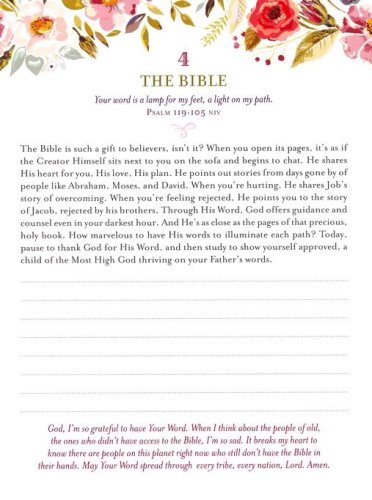 4
THE BIBLE
Your word is a lamp for my feet, a light on my path.
PSALM 119:105 NIV
The Bible is such a gift to believers, isn't it? When you open its pages, it's as if
the Creator Himself sits next to you on the sofa and begins to chat. He shares
His heart for you, His love, His plan. He points out stories from days gone by of
people like Abraham, Moses, and David. When you're hurting. He shares Job's
story of overcoming. When you're feeling rejected. He points you to the story
of Jacob, rejected by his brothers. Through His Word, God offers guidance and
counsel even in your darkest hour. And He's as close as the pages of that precious,
holy book. How marvelous to have His words to illuminate each path? Today,
pause to thank God for His Word, and then study to show yourself approved, a
child of the Most High God thriving on your Father's words.
God, I'm so grateful to have Your Word. When I think about the people of old,
the ones who didn't have access to the Bible, I'm so sad. It breaks my heart to
know there are people on this planet right now who still don't have the Bible in
their hands. May Your Word spread through every tribe, every nation, Lord. Amen.